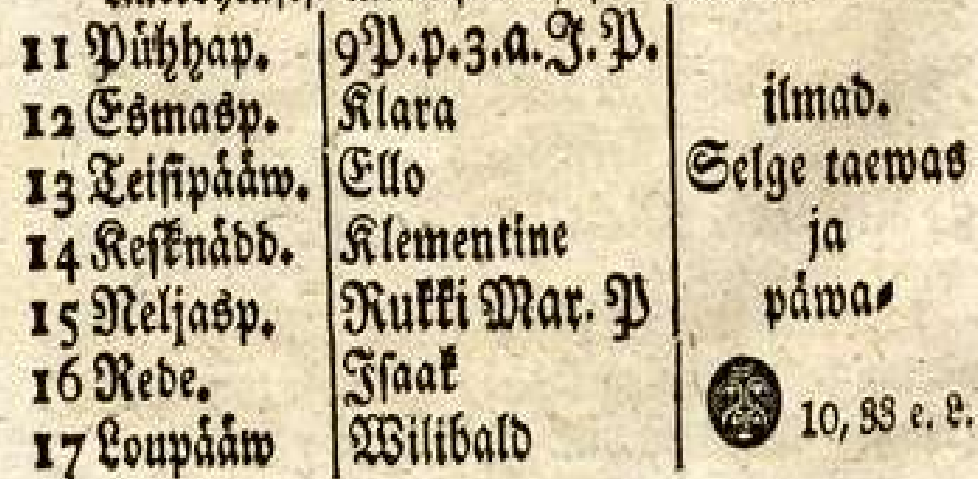 11 Pühhap. 9 P. p. 3. a. J. P.
12 Esmasp. Klara ilmad.
13 Teisipääw. Ello Selge taewas
14 Keſknädd. Klementine ja
15 Neljasp. Rukki Mar. P päwa⸗
16 Rede. Iſaak
17 Loupääw Wilibald 10, 38 e. L.